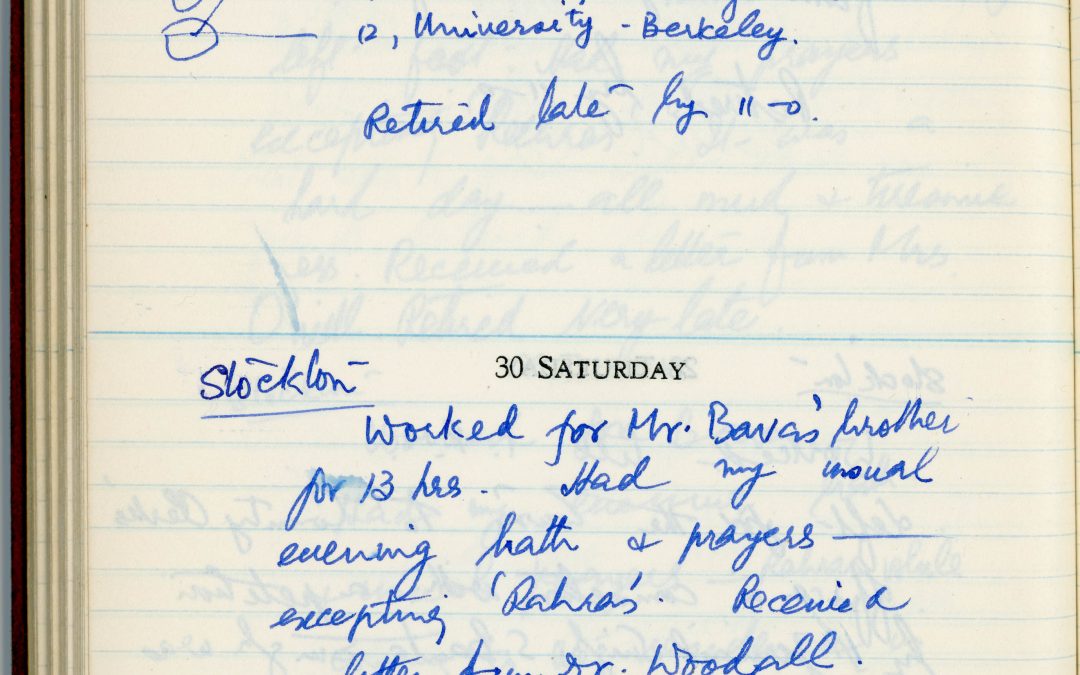 12, University - Berkeley.
Retired late by 11-0.
Stockton
30 SATURDAY
Worked for Mr. Bava's brother
for 13 hrs. Had my usual
evening bath & prayers —
excepting 'Rahras'. Received
letter from Dr. Woodall.